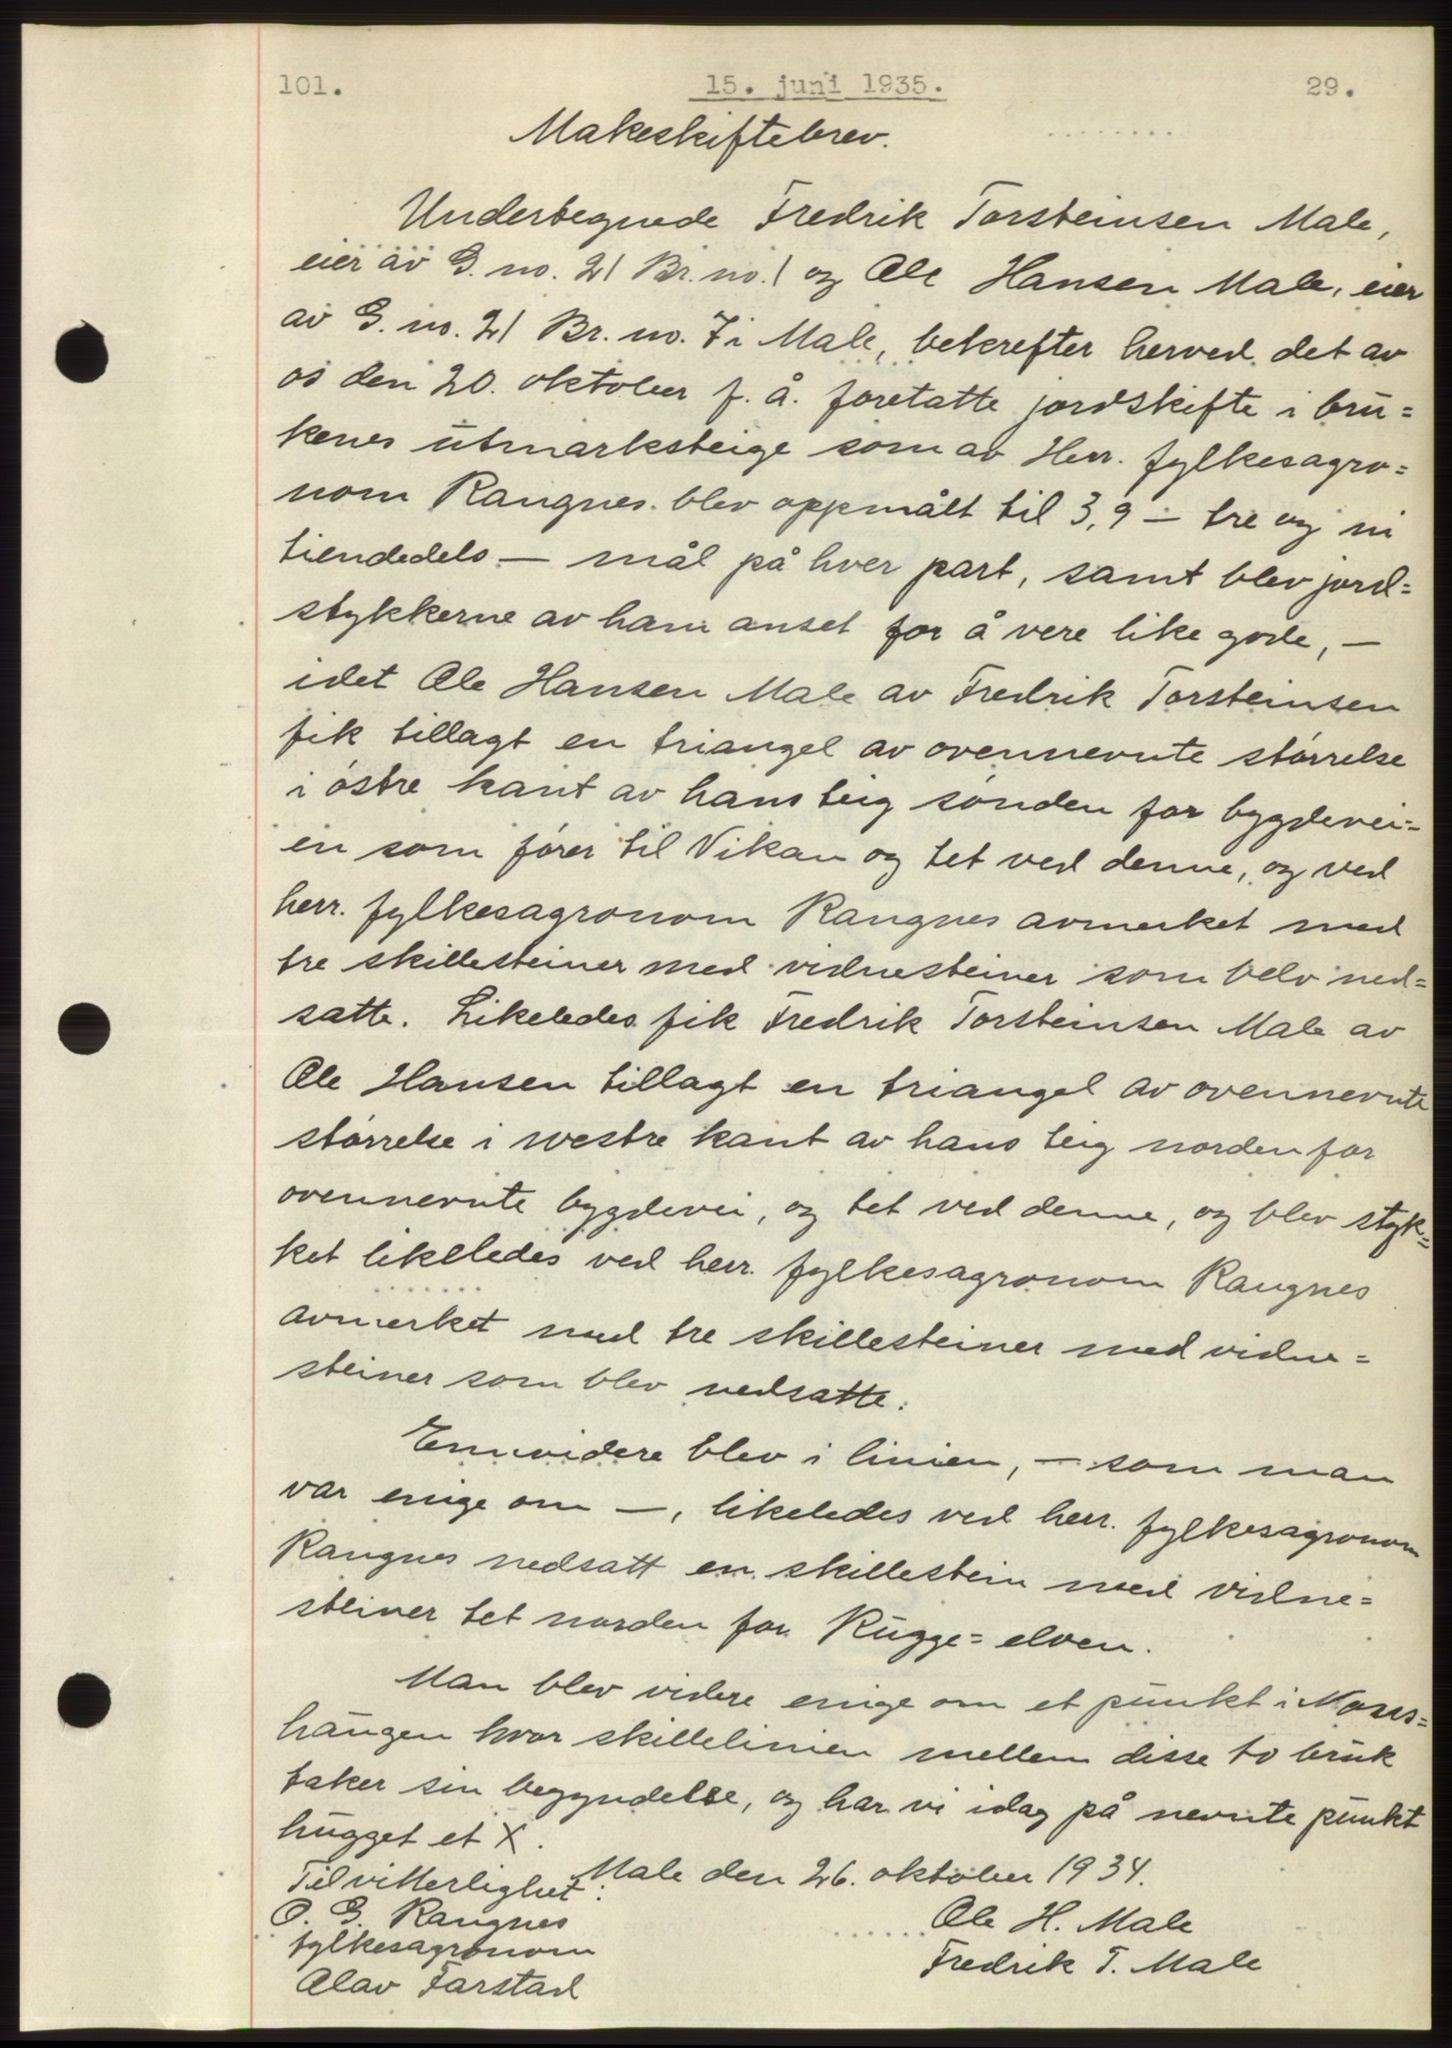 101. 15. juni 1935. 29.
Makeskiftebrev.
Undertegnede Fredrik Torsteinsen Male,
eier av G. no. 21 Br. no. 1 og Ole Hansen Male, eier
av G. no. 21 Br. no. 7 i Male, bekrefter herved det av
os den 20. oktober f. å. foretatte jordskifte i bru=
kenes utmarksteige som av Herr. fylkesagro=
nom Rangnes blev oppmålt til 3,9 — tre og ni
tiendedels — mål på hver part, samt blev jord=
stykkerne av ham anset for å vere like gode, —
idet Ole Hansen Male av Fredrik Torsteinsen
fik tillagt en triangel av ovennevnte størrelse
i østre kant av hans teig sønden for bygdevei=
en som fører til Vikan og tet ved denne, og ved
herr. fylkesagronom Rangnes avmerket med
tre skillesteiner med vidnesteiner som belv ned=
satte. Likeledes fik Fredrik Torsteinsen Male av
Ole Hansen tillagt en triangel av ovennevnte
størrelse i westre kant av hans teig norden for
ovennevnte bygdevei, og tet ved denne, og blev styk=
ket likeledes ved herr. fylkesagronom Rangnes
avmerket med tre skillesteiner med vidne=
steiner som blev nedsatte.
Ennvidere blev i linien, — som man
var enige om —, likeledes ved herr. fylkesagronom
Rangnes nedsatt en skillestein med vidne=
steiner tet norden for Rugge=elven.
Man blev videre enige om et punkt i
haugen hvor skillelinien mellem disse to bruk
taker sin begyndelse, og har vi idag på nevnte punkt
hugget et X.
Male den 26. oktober 1934.
Til vitterlighet:
O. G. Rangnes Ole H. Male
fylkesagronom Fredrik T. Male
Olav Farstad